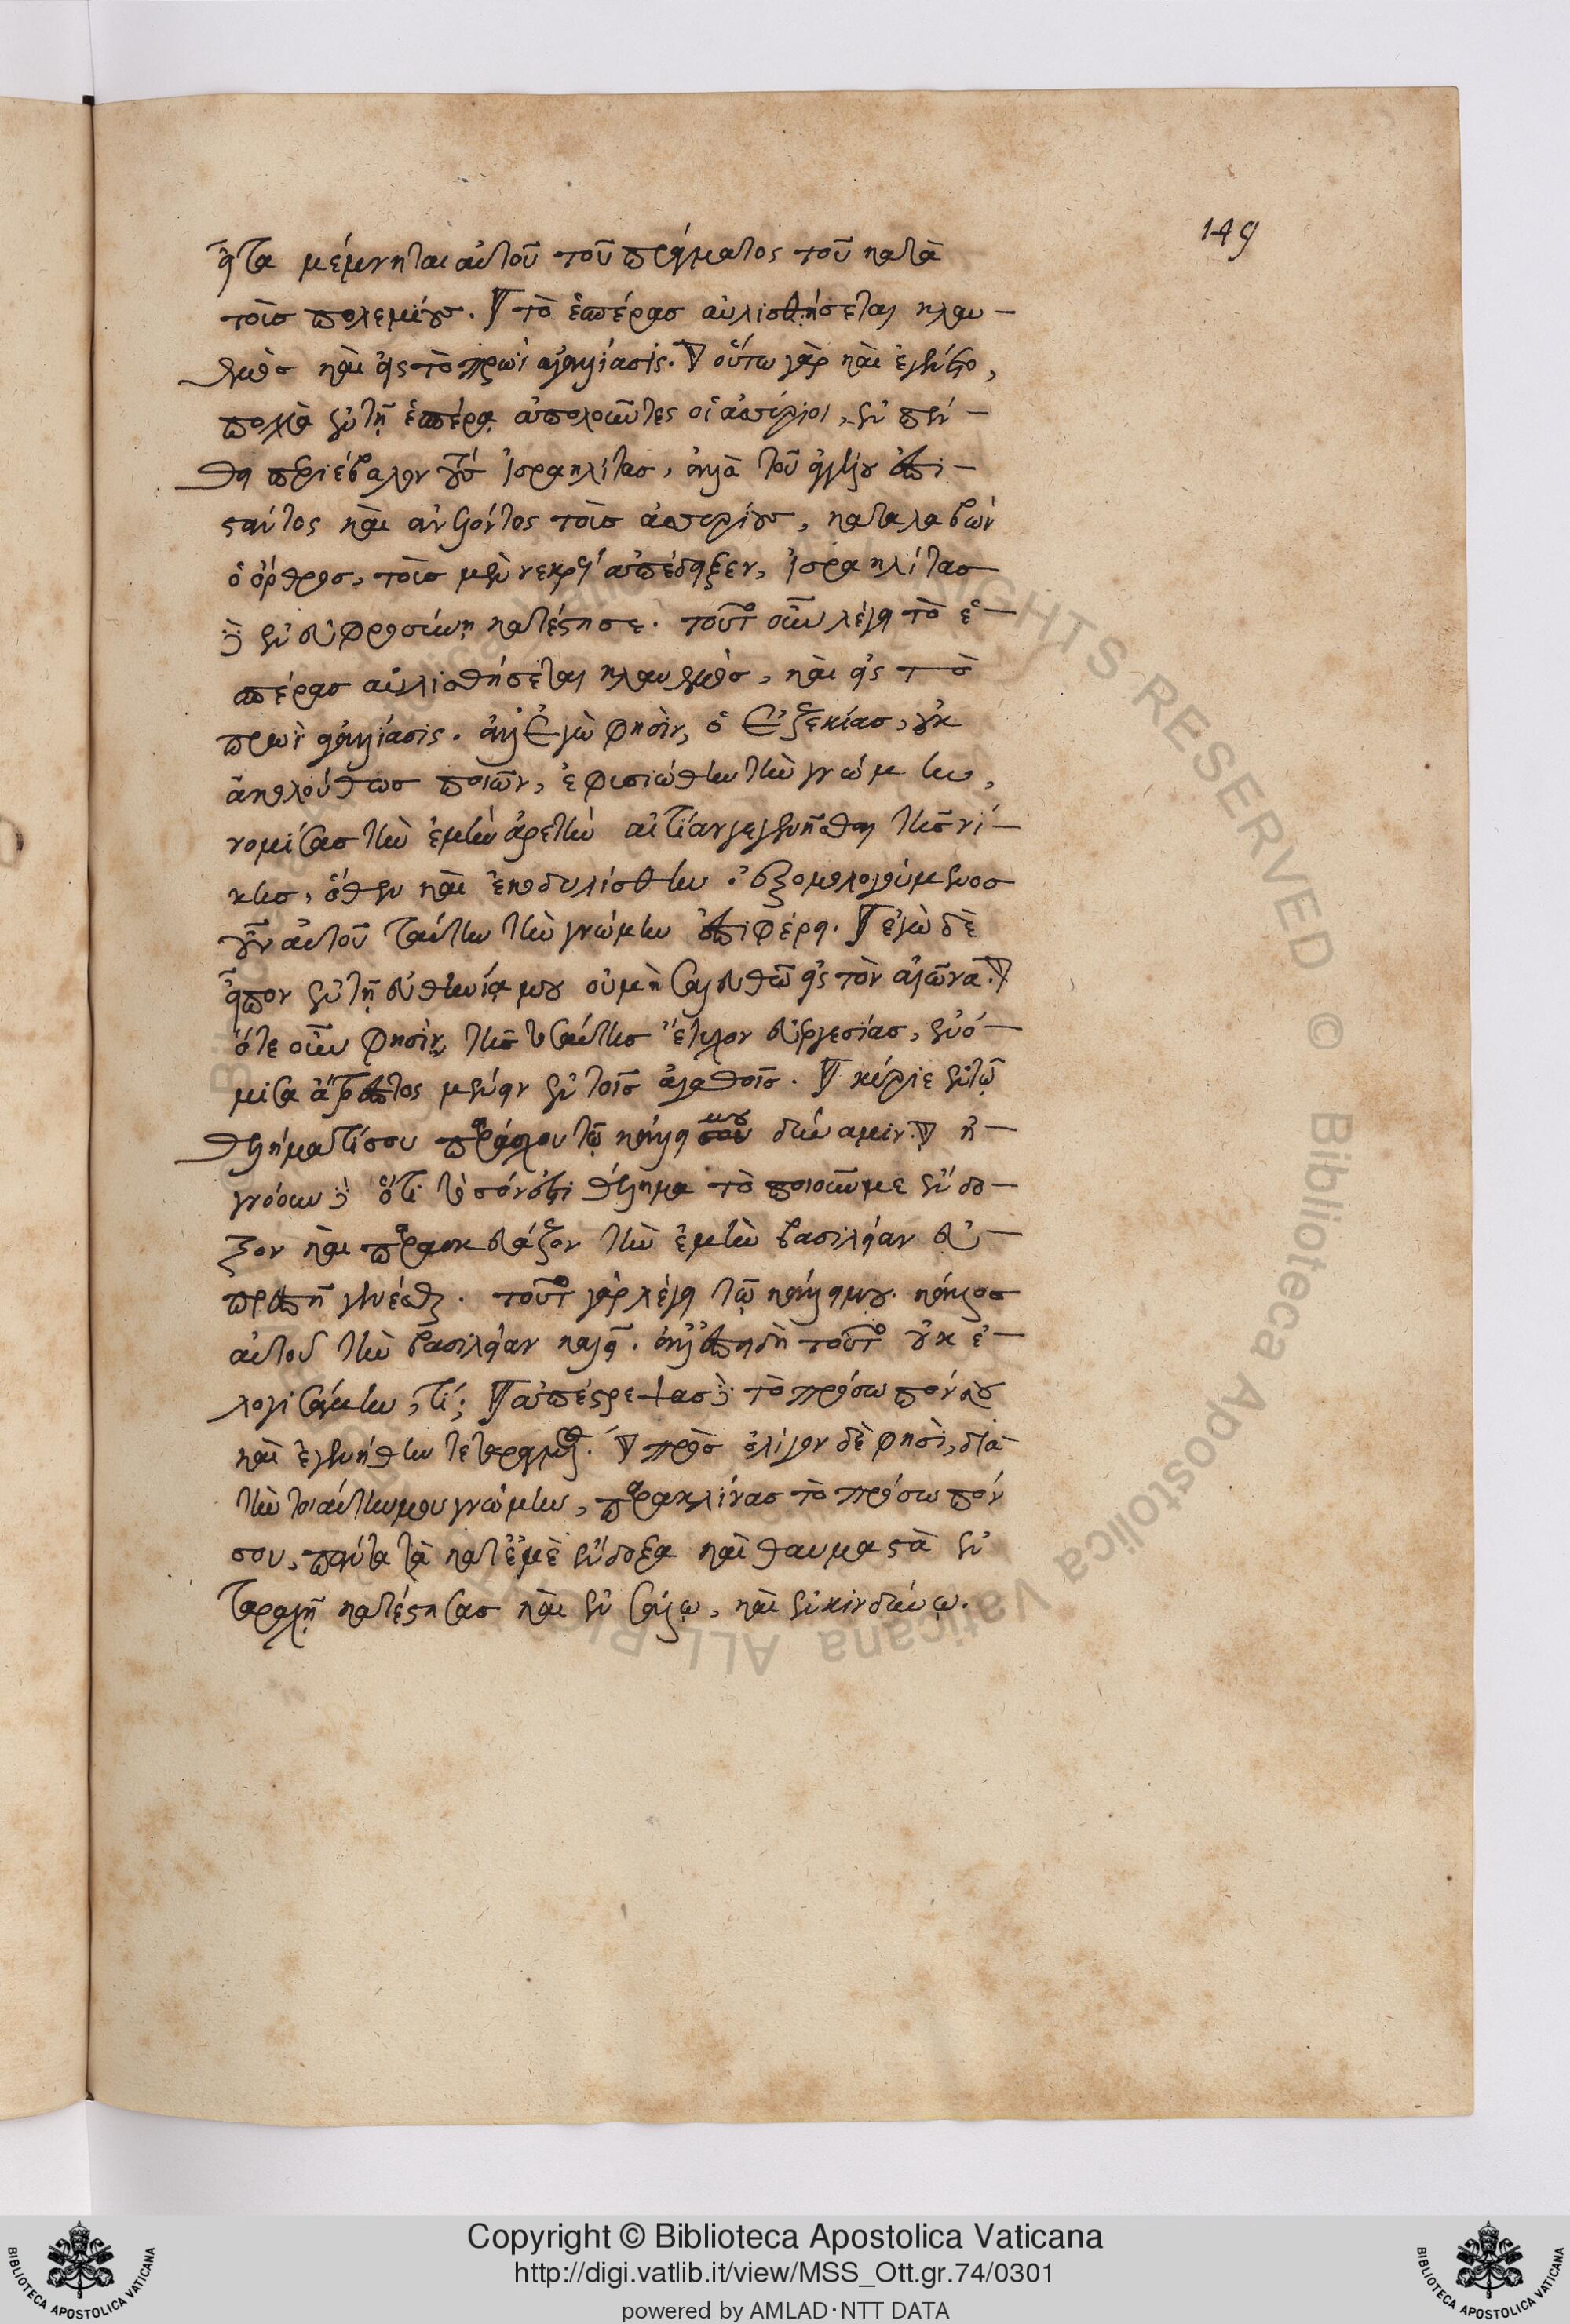 149
εἶτα μέμνηται αὐτοῦ τοῦ πράγματος τοῦ κατὰ
τοῖς πολεμίοις. τὸ ἑσπέρας αὐλισθήσεται κλαυ-
θμὸς καὶ εἰς τὸ πρωῒ ἀγαλλίασις. οὕτω γὰρ καὶ ἐγένετο,
πολλὰ ἐν τῇ ἑσπέρᾳ οἱ ἀσσύριοι, ἐν πέν-
θει περιέβαλον τοὺς ἰσραηλίτας, ἀλλὰ τοῦ ἀγγέλου ἐπι-
στάντος καὶ ἀνελόντος τοῖς ἀσσυρίοις, καταλαβὼν
ὁ ὄρθρος, τοῖς μὲν νεκροὺς ἀπέδειξεν, ἰσραηλίτας
δὲ ἐν εὐφροσύνῃ κατέστησε. τοῦτο οὖν λέγει τὸ ἑ-
σπέρας αὐλισθήσεται κλαυθμὸς, καὶ εἰς τὸ
πρωῒ ἀγαλλίασις. ἀλλ' ἐγὼ φησὶν, ὁ ἐζεκίας, οὐκ
ἀκολούθως ποιῶν, ἐφυσιώθην τὴν γνώμην,
νομίσας τὴν ἐμὴν ἀρετὴν αἰτίαν γεγενῆσθαι τῆς νί-
κης, ὅθεν καὶ ἐπεδυλίσθην. ἐξομολογούμενος
γοῦν αὐτοῦ ταύτην τὴν γνώμην ἐπιφέρει. ἐγὼ δὲ
εἶπον ἐν τῇ εὐθηνίᾳ μου οὐ μὴ σαλευθῶ εἰς τὸν αἰῶνα.
ὅτε οὖν φησὶν, τῆς τοσαύτης ἔτυχον εὐεργεσίας, ἐνό-
μισα ἄτρεπτος μένειν ἐν τοῖς ἀγαθοῖς. κύριε ἐν τῷ
θελήματί σου παράσχου τῷ κάλλει μου δύναμιν. ἠ-
γνόουν δὲ ὅτι τὸ σόν ἐστι θέλημα τὸ ποιοῦν με ἔνδο-
ξον καὶ παρασκευάζον τὴν ἐμὴν βασιλείαν εὐ-
πρεπῆ γενέσθαι. τοῦτο γὰρ λέγει τῷ κάλλει μου. κάλλος
αὐτοῦ τὴν βασιλείαν καλεῖ. ἀλλ' ἐπειδὴ τοῦτο οὐκ ἐ-
λογισάμην, τί; ἀπέστρεψας δὲ τὸ πρόσωπόν σου
καὶ ἐγενήθην τεταραγμένος. πρὸς ὀλίγον δὲ φησὶ, διὰ
τὴν τοιαύτην μου γνώμην, παρακλίνας τὸ πρόσωπόν
σου, πάντα τὰ κατ' ἐμὲ ἔνδοξα καὶ θαυμαστὰ ἐν
ταραχῇ κατέστησας καὶ ἐν σάλῳ, καὶ ἐν κινδύνῳ.
Copyright © Biblioteca Apostolica Vaticana
http://digi.vatlib.it/view/MSS_Ott.gr.74/0301
powered by AMLAD·NTT DATA
BIBLIOTECA APOSTOLICA VATICANA
BIBLIOTECA APOSTOLICA VATICANA